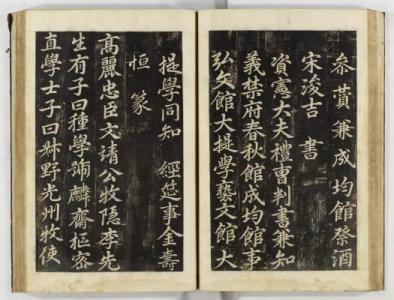 參贊兼成均館祭酒
宋浚吉 書
資憲大夫禮曹判書兼知
義禁府春秋館成均館事
弘文館大提學藝文館大
提學同知 經筵事金壽
恒 篆
高麗忠臣文靖公牧隱李先
生有子曰種學號麟齋樞密
直學士子曰叔野光州牧使